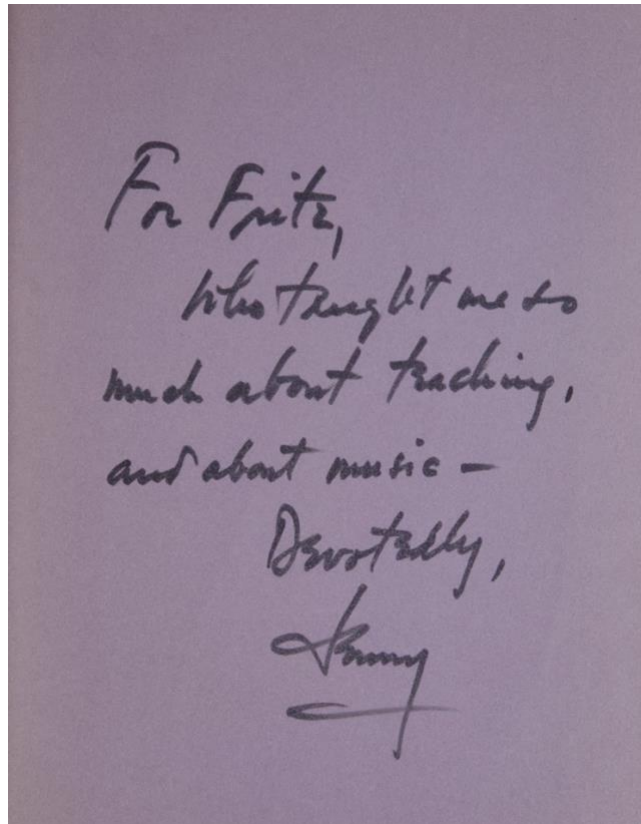 For Fritz,
who taught me so
much about teaching,
and about music –
Devotedly,
Lenny